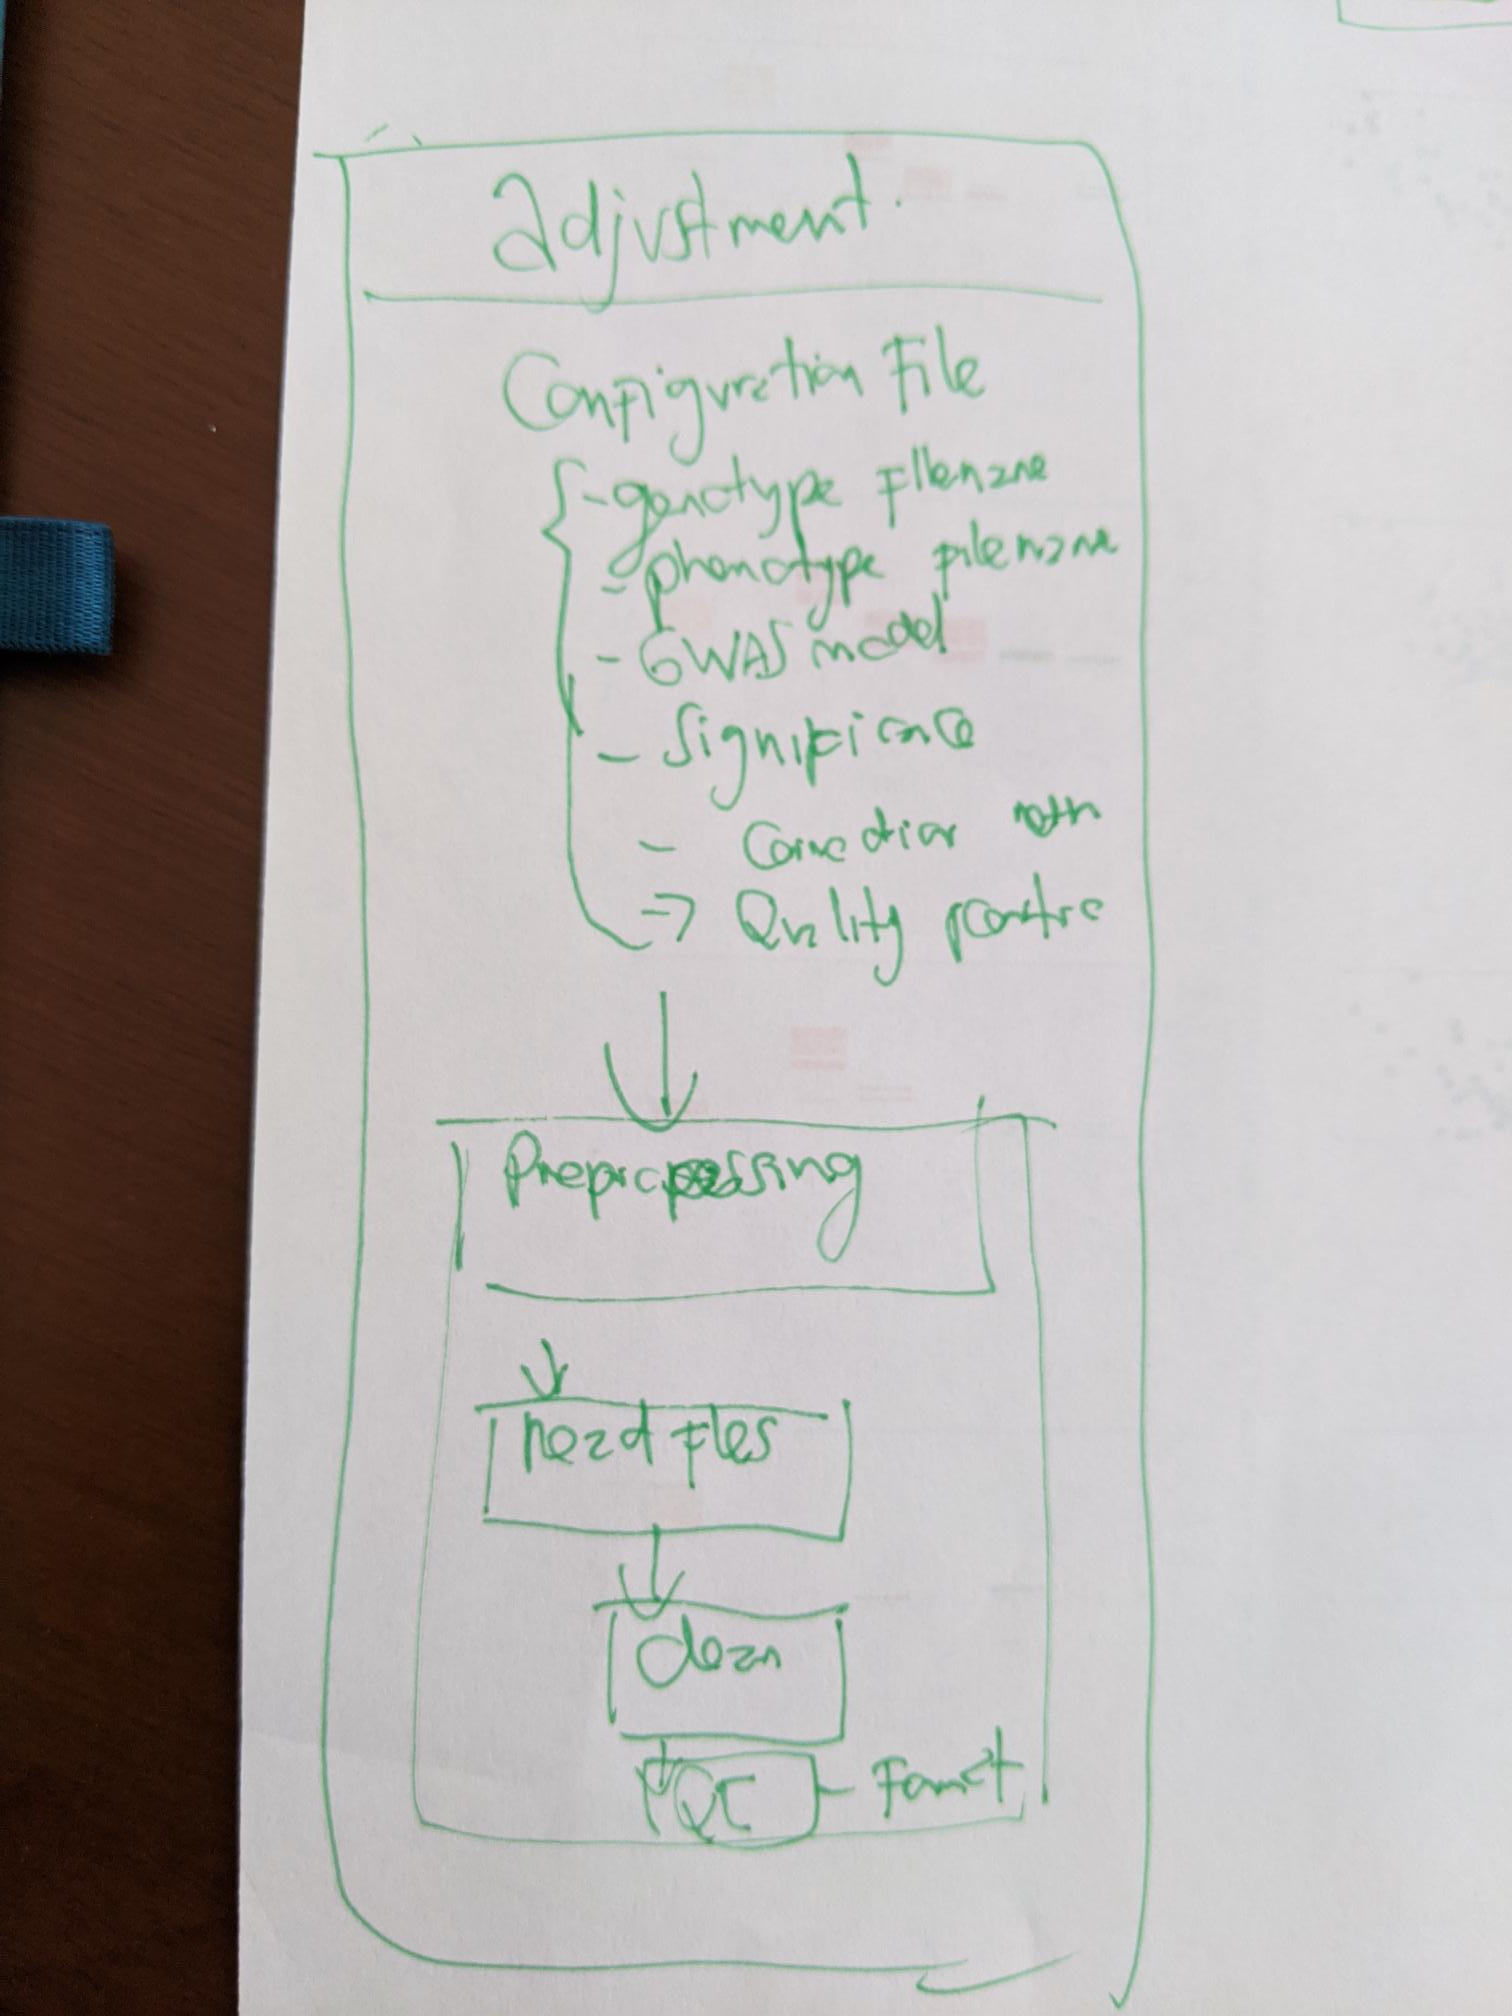 adjustment.
Configuration File
- genotype filename
- phenotype filename
- GWAS model
- Significance
- Correction
→ Quality
Preprocessing
read files
clean
QC - Format